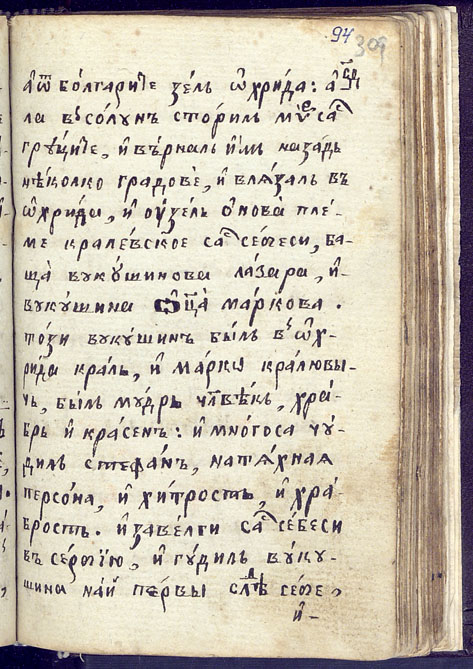 94
309
а҆ ѿ болгарїе зе́лъ ѡ҆хри́да: а҆
ла въ со́лꙋнъ стори́лъ ми́ръ са
грꙋ́ците, и҆ вѣ́рналъ и҆́мъ наза́дь
нѣ́колко гра́дове, и҆ влѧ́залъ въ
ѡ҆хри́да, и҆ ᲂу҆зе́лъ ѻ҆нова пле́-
ме кралевское са сегеси, ба-
ща̀ вꙋкꙋ́шинова ла́зара, и҆-
вꙋкꙋ́шина ѿца̀ ма́ркова.
то́зи вꙋкꙋ́шинъ бы́лъ въ ѡ҆х-
ри́да кра́лъ, и҆ ма́рко кра́лювы-
чъ, бы́лъ мꙋ́дръ чл҃вѣ́къ, хра́-
бръ и҆ кра́сенъ: и҆ мно́госа чꙋ́-
дилъ стефа́нъ, на тѧ́хная
персо́на, и҆ хи́трость, и҆ хра́-
брость. и҆ заве́лги са се́беси
въ се́рбїю, и҆ гꙋ́дилъ вꙋкꙋ́-
шина на́й пе́рвы слѣ́дъ се́бе,
и҆-